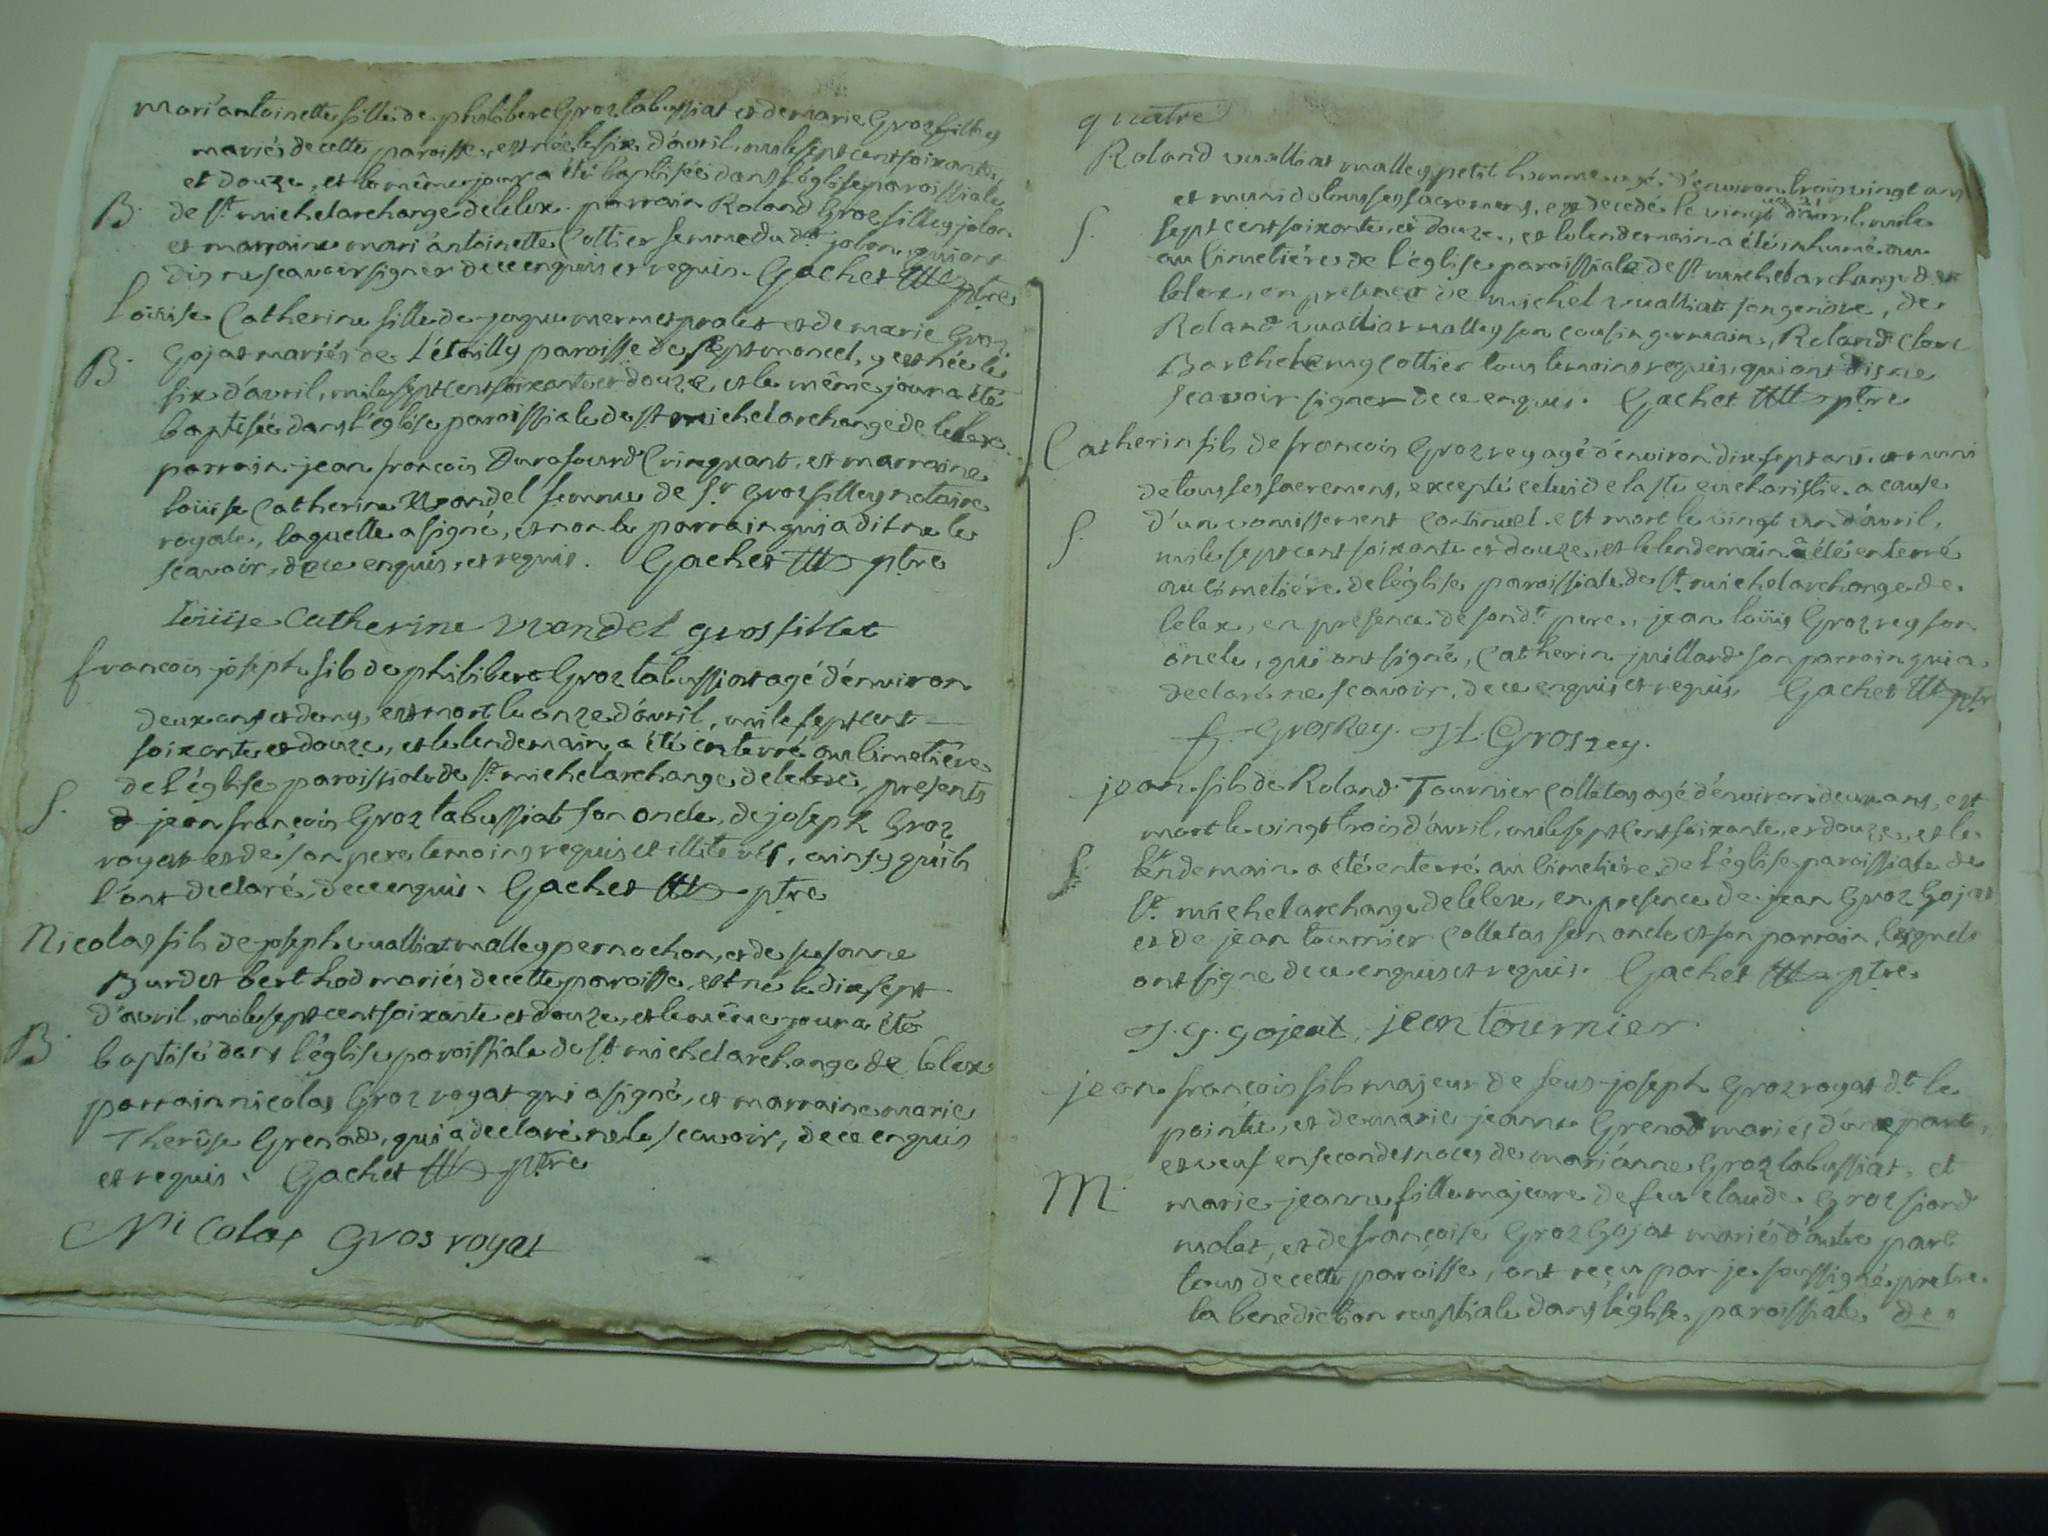 Mari antoinette fille de philibert Groz tabussiat et de marie Groz filley
mariés de cette paroisse, est née le six d'avril, mile sept cent soixante,
et douze, et le même jour a été baptisée dans l'église paroissiale
B. de St. michel archange de lelex. parrain Roland Groz filley jolon
et marraine mari antoinette Cottier femme du dt jolon, qui ont
dis ne scavoir signer de ce enquis et requis. Gachet ptre
Loüise Catherine fille de jaque mermet prolet et de marie Groz
B. Gojat mariés de L'étoilly paroisse de septmoncel, y est née le
six d'avril, mile sept cent soixante et douze, et le même jour a été
baptisée dans l'église paroissiale de st michel archange de lelex.
parrain jean françois Durafourd Cinquant, et marraine
loüise Catherine Wandel femme de Sr Groz filley notaire
royale, laquelle a signé, et non le parrain qui a dit ne le
scavoir, de ce enquis, et requis. Gachet ptre
loüise catherine Wandel gros fillet
francois joseph fils de philibert Groz tabussiat agé d'environ
deux ans et demy, est mort le onze d'avril, mile sept cent
soixante et douze, et le lendemain a été enterré au cimetière
de l'église paroissiale de St. michel archange de lelex, présents
S. jean françois Groz tabussiat son oncle, de joseph Groz
royat et de son pere temoins requis et illiterés, ainsy qu'ils
l'ont declaré, de ce enquis. Gachet ptre
Nicolas fils de joseph vualliat malley pernochon, et de susanne
Burdet berthod mariés de cette paroisse, est né le dix sept
d'avril, mile sept cent soixante et douze, et le même jour a été
B. baptisé dans l'église paroissiale de st michel archange de lelex
parrain nicolas Groz royat qui a signé, et marraine marie
Therèse Grenad, qui a declaré ne le scavoir, de ce enquis
et requis. Gachet ptre
Nicolas Gros royat
quatre
Roland vualliat malley petit homme agé d'environ trois vingt ans
et muni de tous ses sacremens, est decedé le vingt d'avril mile
S. sept cent soixante et douze, et le lendemain a été inhumé au
au cimetiére de l'église paroissiale de St michel archange de
lelex, en presence de michel vualliat son gendre, de
Roland vualliat malley son cousin germain, Roland Clerc
Barthelemy Cottier tous temoins requis, qui ont dis ne
scavoir signer de ce enquis. Gachet ptre
Catherin fils de francois Groz rey agé d'environ dix sept ans, et muni
de tous ses sacremens, excepté celui de la ste eucharistie a cause
S. d'un vomissement continuel est mort le vingt un d'avril,
mile sept cent soixante et douze, et le lendemain a été enterré
au cimetiére de l'église paroissiale de St. michel archange de
lelex, en presence de son dt. pere, jean loüis Groz rey son
oncle, qui ont signé, Catherin juillard son parrain qui a
declaré ne scavoir, de ce enquis et requis. Gachet ptr
f. Grosrey. J L Grosrey.
jean fils de Roland Tournier Colletas agé d'environ deux ans, est
mort le vingt trois d'avril, mile sept cent soixante, et douze, et le
S. lendemain a été enterré au cimetiére de l'église paroissiale de
St. michel archange de lelex, en presence de jean Groz Gojat
et de jean tournier Colletas son oncle et son parrain, lesquels
ont signe de ce enquis et requis. Gachet ptre
J. G. gojeat, jean tournier
jean françois fils majeur de feus joseph Groz royat dt. le
pointu, et de marie jeanne Grenad mariés d'une part,
et veuf en secondes noces de marianne Groz tabussiat, et
M. marie jeanne fille majeure de feu claude Groz siord
molet, et de françoise Groz Gojat mariés d'autre part
tous de cette paroisse, ont reçu par je soussigné pretre
la benediction nuptiale dans l'église paroissiale de